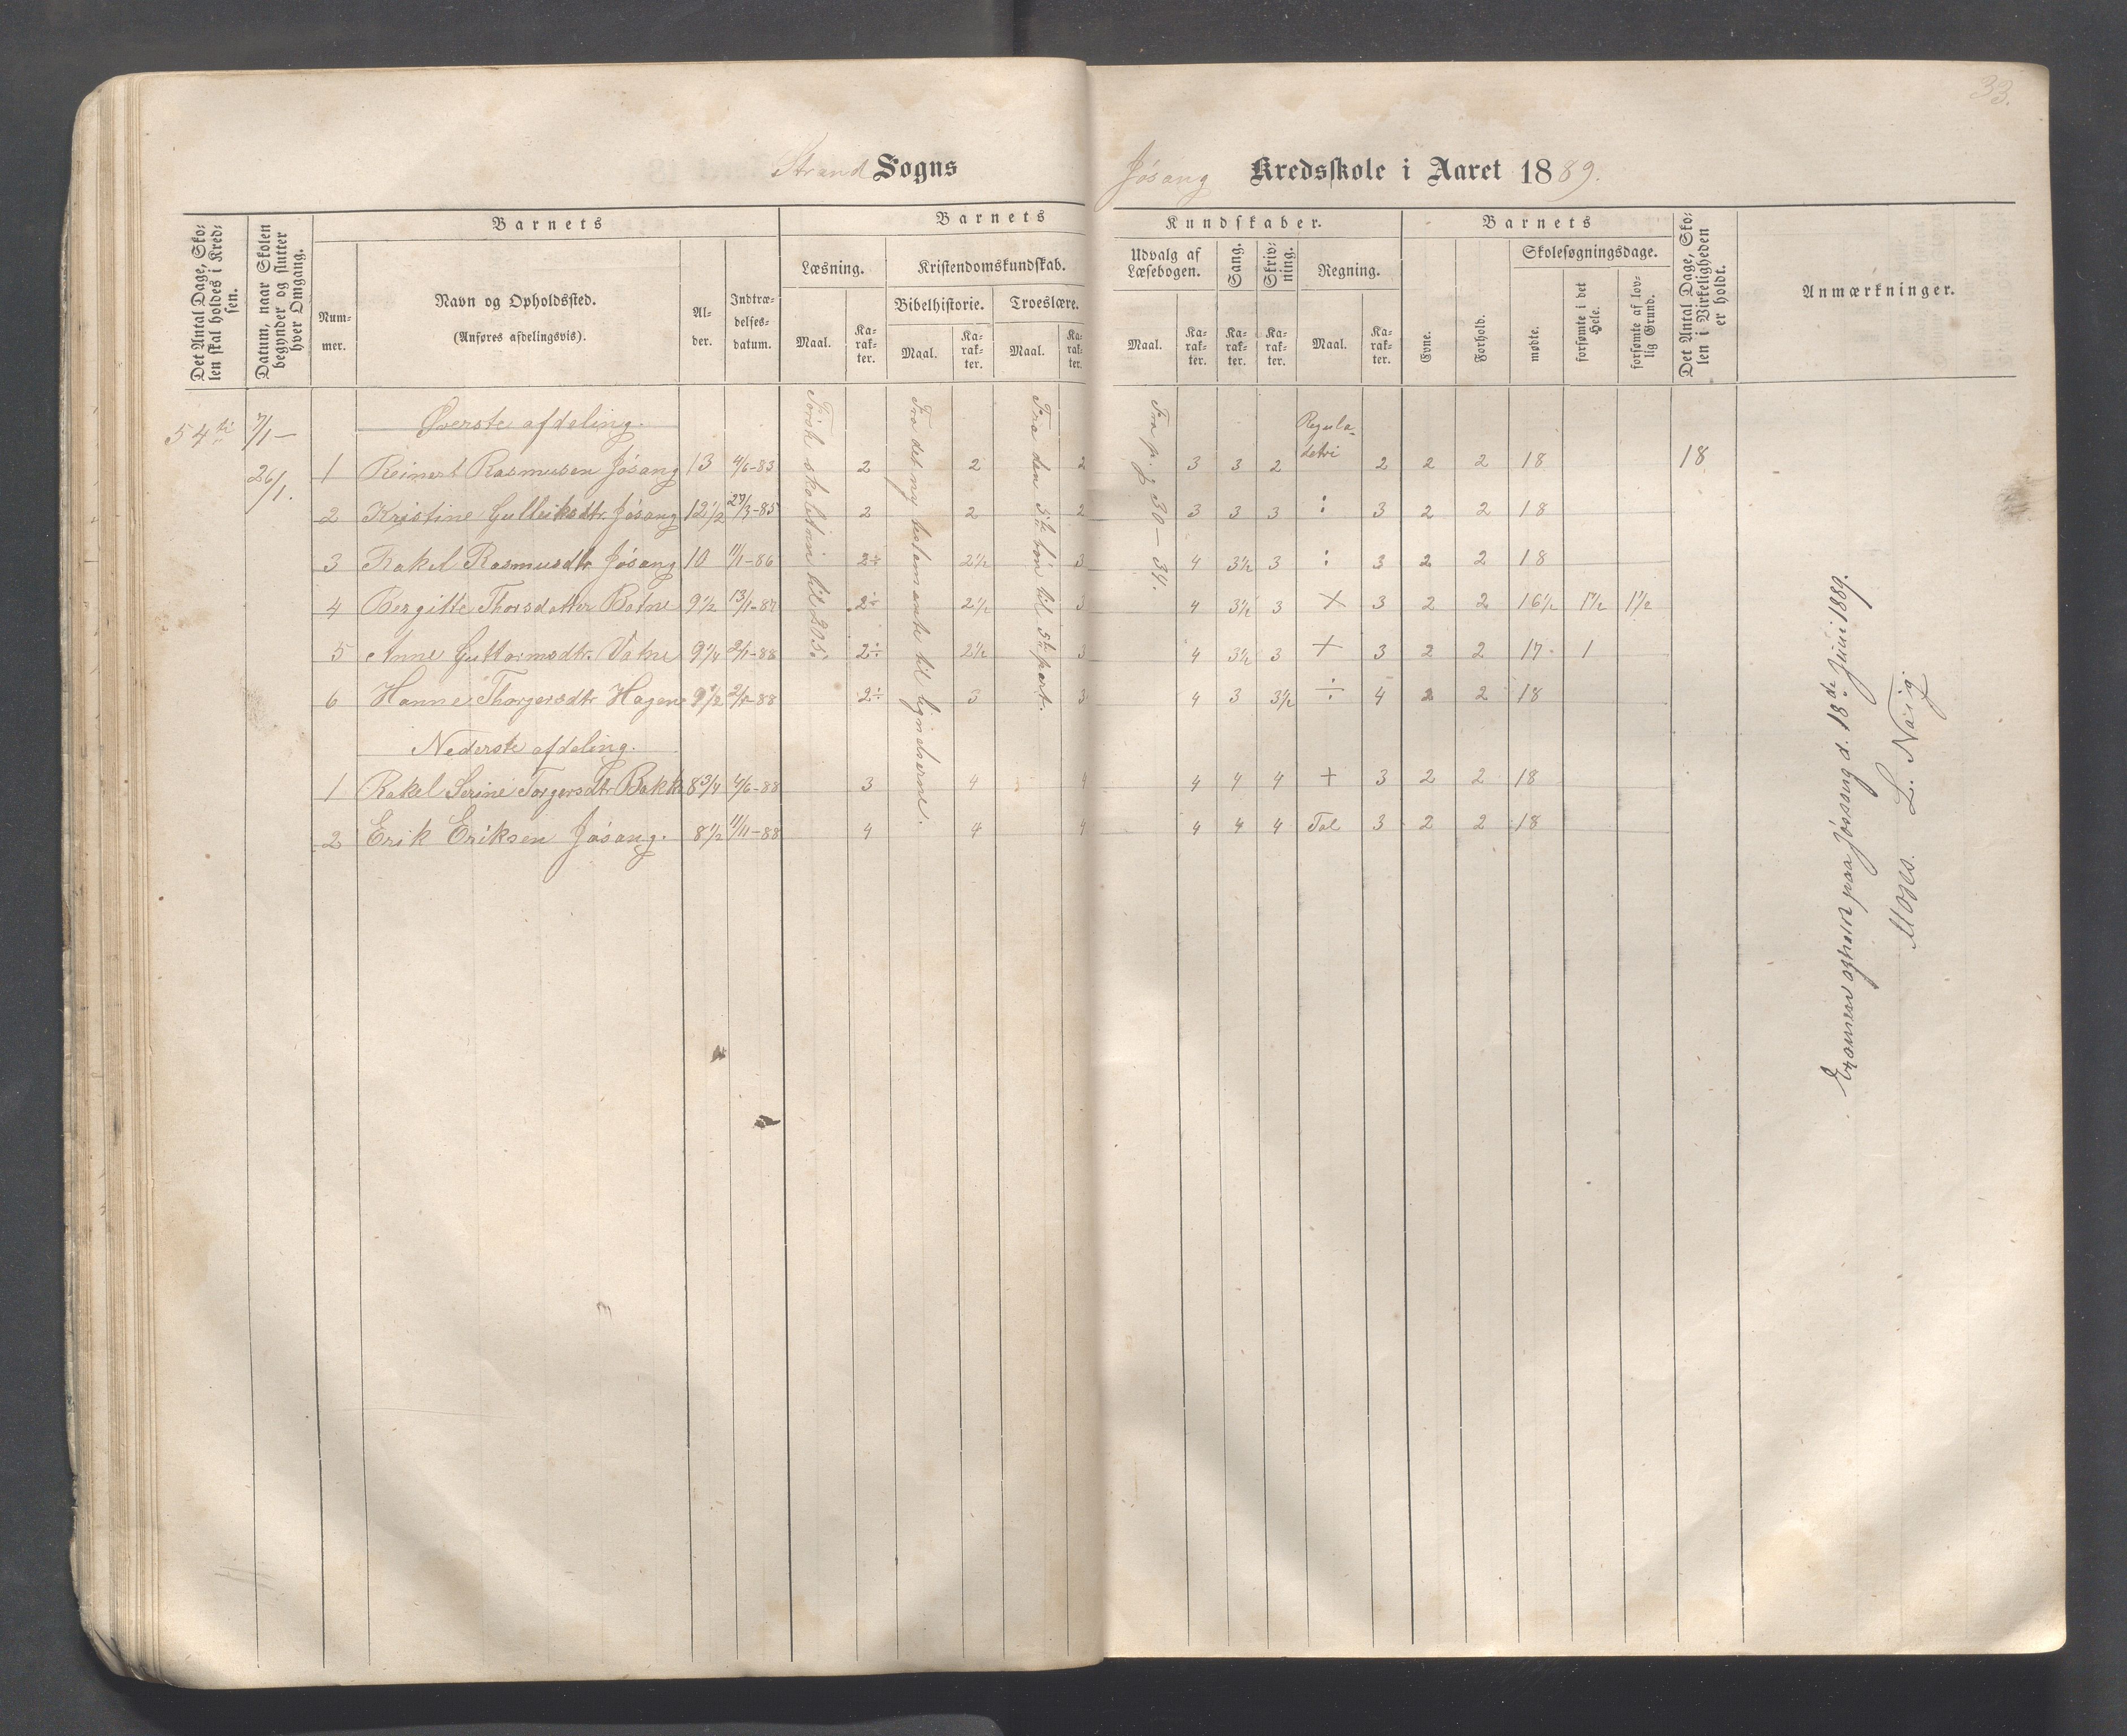 33.
Strand Sogns
Jösang Kredsskole i Aaret 1889.
Det Antal Dage, Skolen skal holdes i Kredsen.
Datum, naar Skolen begynder og slutter hver Omgang.
Barnets
Nummer.
Navn og Opholdssted.
(Anføres afdelingsvis).
Alder.
Indtrædelsesdatum.
Barnets
Læsning.
Maal.
Karakter.
Kristendomskundskab.
Bibelhistorie.
Maal.
Karakter.
Troeslære.
Maal.
Karakter.
Kundskaber.
Udvalg af Læsebogen.
Maal.
Karakter.
Sang.
Karakter.
Skrivning.
Karakter.
Regning.
Maal.
Karakter.
Barnets
Evne.
Forhold.
Skolesøgningsdage.
mødte.
forsømte i det Hele.
forsømte af lovlig Grund.
Det Antal Dage, Skolen i Virkeligheden er holdt.
Anmærkninger.
54 7/1 — 26/1.
Øverste afdeling.
1 Reinert Rasmusen Jösang 13 4/6-83 2 2 2 3 3 2 Reguladetri 2 2 2 18 18
2 Kristine Gulleiksdtr. Jösang 12 1/2 27/3-85 2 2 2 3 3 3 : 3 2 2 18
3 Rakel Rasmusdtr Jösang 10 11/1-86 2÷ 2 1/2 3 4 3 1/2 3 : 3 2 2 18
4 Bergitte Thorsdatter Botne 9 1/2 13/1-87 2÷ 2 1/2 3 4 3 1/2 3 × 3 2 2 16 1/2 1 1/2 1 1/2
5 Anne Guttormsdtr. Vatne 9 1/4 2/1-88 2÷ 2 1/2 3 4 3 1/2 3 × 3 2 2 17 1
6 Hanne Thorgersdtr Hagen 9 1/2 -88 2÷ 3 3 4 3 3 1/2 ÷ 4 2 2 18
Nederste afdeling.
1 Rakel Serine Torgersdtr Bakk 8 3/4 4/6-88 3 4 4 4 4 4 + 3 2 2 18
2 Erik Eriksen Jösang. 8 1/2 11/11-88 4 4 4 4 4 4 Tal 3 2 2 18
til 205.
Fra det ny testamente til lignelserne.
Fra den 5te bön til 5te part.
Fra p. 30 — 34.
Examen afholdt paa Jøssang d. 18de Juni 1889.
L.